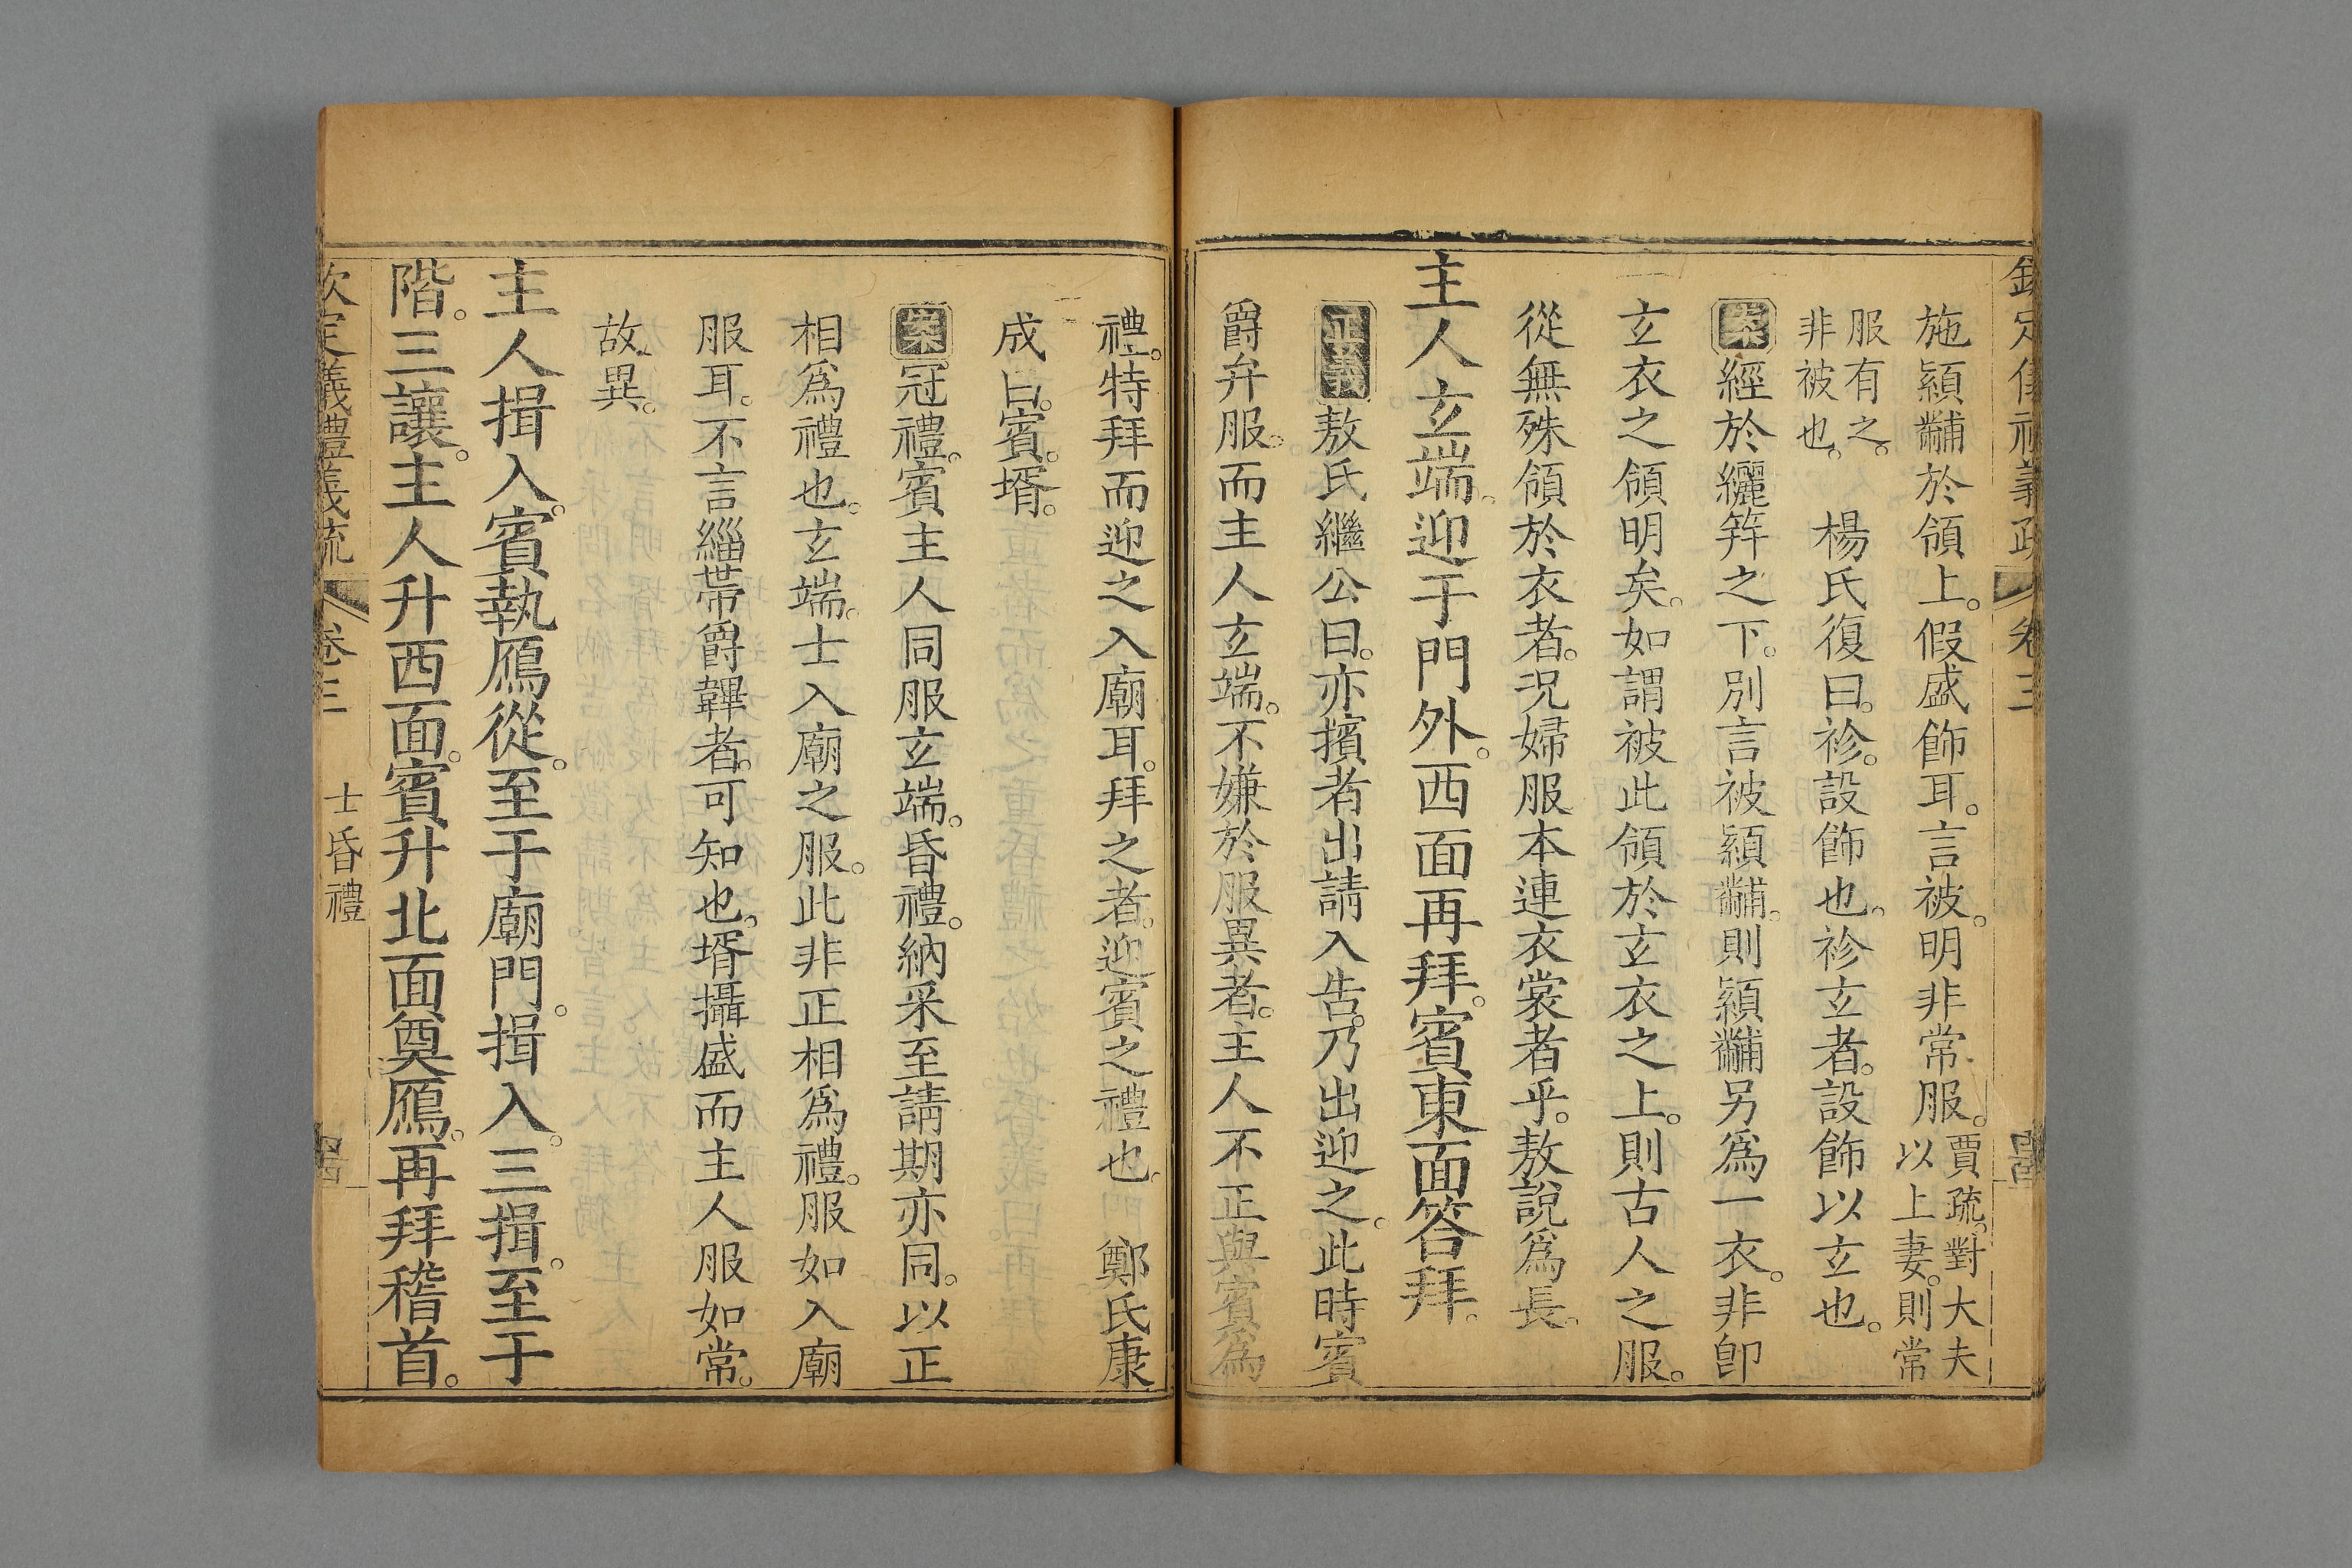 欽定儀禮義疏 卷三
施顈黼於領上。假盛飾耳。言被。明非常服。賈疏。對大夫以上妻。則常
服有之。非被也。 楊氏復曰。袗。設飾也。袗玄者。設飾以玄也。
案經於纚笄之下。別言被顈黼。則顈黼另爲一衣。非卽
玄衣之領明矣。如謂被此領於玄衣之上。則古人之服。
從無殊領於衣者。況婦服本連衣裳者乎。敖說爲長。
主人玄端。迎于門外。西面再拜。賓東面答拜。
正義敖氏繼公曰。亦擯者出請入告。乃出迎之。此時賓
爵弁服。而主人玄端。不嫌於服異者。主人不正與賓爲
禮。特拜而迎之入廟耳。拜之者。迎賓之禮也。 鄭氏康
成曰。賓。壻。
案冠禮。賓主人同服玄端。昏禮。納采至請期亦同。以正
相爲禮也。玄端。士入廟之服。此非正相爲禮。服如入廟
服耳。不言緇帶爵韠者。可知也。壻攝盛而主人服如常。
故異。
主人揖入。賓執鴈從。至于廟門。揖入。三揖。至于
階。三讓。主人升西面。賓升北面奠鴈。再拜稽首。
欽定義禮義疏 卷三 士昏禮